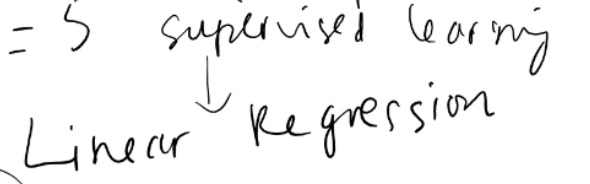 = 5 supervised learning
↓
Linear Regression